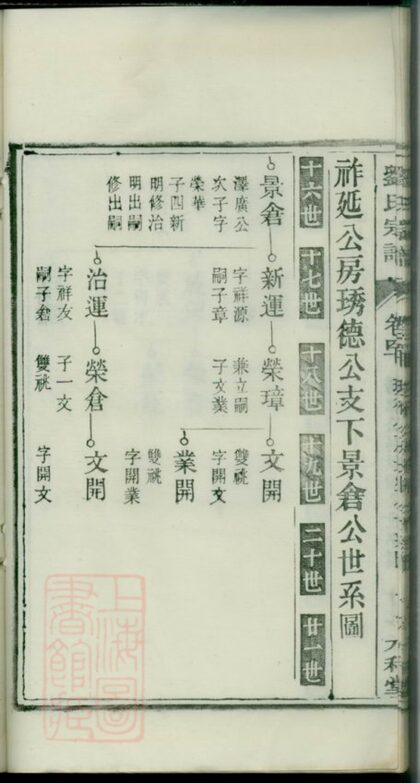 劉氏宗譜
祚延公房琇德公支下景倉公世系圖
十六世 十七世 十八世 十九世 二十世 廿一世
景倉 新運 榮璋 文開
澤廣公 字祥源 兼立嗣 雙祧
次子字 嗣子章 子文業 字開文
榮華
子四新
明修治
明出嗣
修出嗣
業開
雙祧
字開業
治運 榮倉 文開
字祥友 子一文 雙祧
嗣子倉 雙祧 字開文
上海圖書館藏